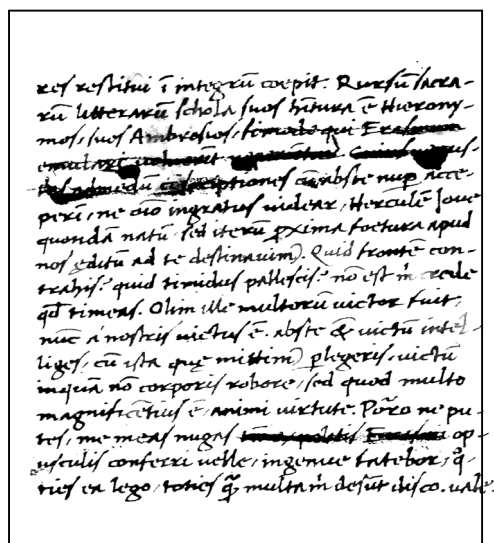 res restitui ī integrū coepit. Rursū sacra-
rū litterarū schola suos hītura ē Hierony-
mos, suos Ambrosios, si modo qui Erasmum
emulari voluerit
admodū descriptiones cū abs te nup acce-
peri, ne oīo ingratus videar, Herculē Iove
quondā natū, sed iterū pxima foetura apud
nos editū ad te destinavim). Quid frontē con-
trahis? quid timidus pallescis? nō est m̄ crede
qd timeas. Olim ille multorū victor fuit,
nūc a nostris victus ē. abste & victū intel-
liges, cū ista quę mittim) plegeris, victū
inquā nō corporis robore, sed quod multo
magnificētius ē animi virtute. Porro ne pu-
tes, me meas nugas Erasmi op-
usculis conferri velle, ingenue fatebor, q-
ties ea lego, toties q̄ multa m̄ desūt disco. vale.